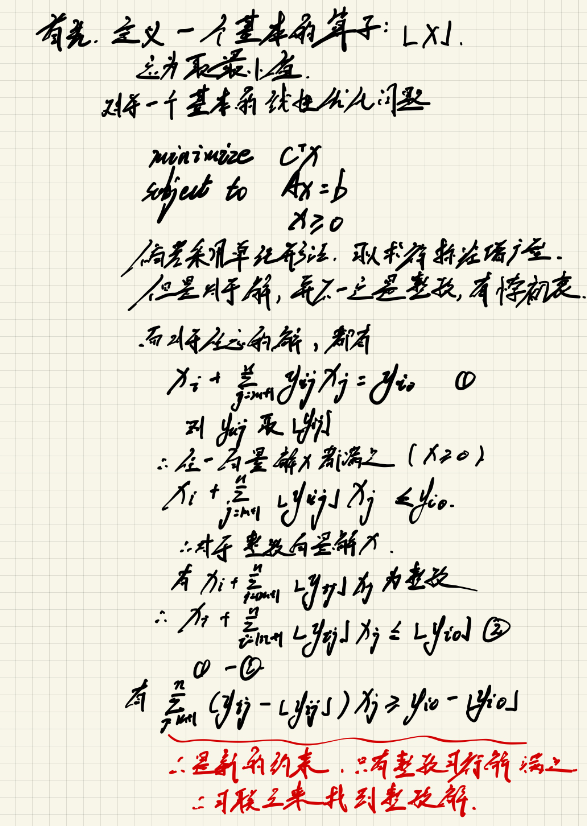 首先. 定义一个基本的算子: ⌊X⌋.
它为取最小值.
对于一个基本的线性优化问题
minimize CᵀX
subject to AX = b
X ≥ 0
倘若采用单纯形法. 取求解标准增广型.
但是对于解, 并不一定是整数, 有悖初衷.
而对于任意的解, 都有
xᵢ + Σⁿⱼ₌ₘ₊₁ yᵢⱼ xⱼ = yᵢ₀ ①
对 yᵢⱼ 取 ⌊yᵢⱼ⌋
∴ 任一向量解 X 都满足 (X ≥ 0)
xᵢ + Σⁿⱼ₌ₘ₊₁ ⌊yᵢⱼ⌋ xⱼ ≤ yᵢ₀.
∴ 对于整数向量解 X.
有 xᵢ + Σⁿⱼ₌ₘ₊₁ ⌊yᵢⱼ⌋ xⱼ 为整数
∴ xᵢ + Σⁿⱼ₌ₘ₊₁ ⌊yᵢⱼ⌋ xⱼ ≤ ⌊yᵢ₀⌋ ②
① - ②
有 Σⁿⱼ₌ₘ₊₁ (yᵢⱼ - ⌊yᵢⱼ⌋) xⱼ ≥ yᵢ₀ - ⌊yᵢ₀⌋
∴ 是新的约束. 只有整数可行解满足
∴ 可联立来找到整数解.